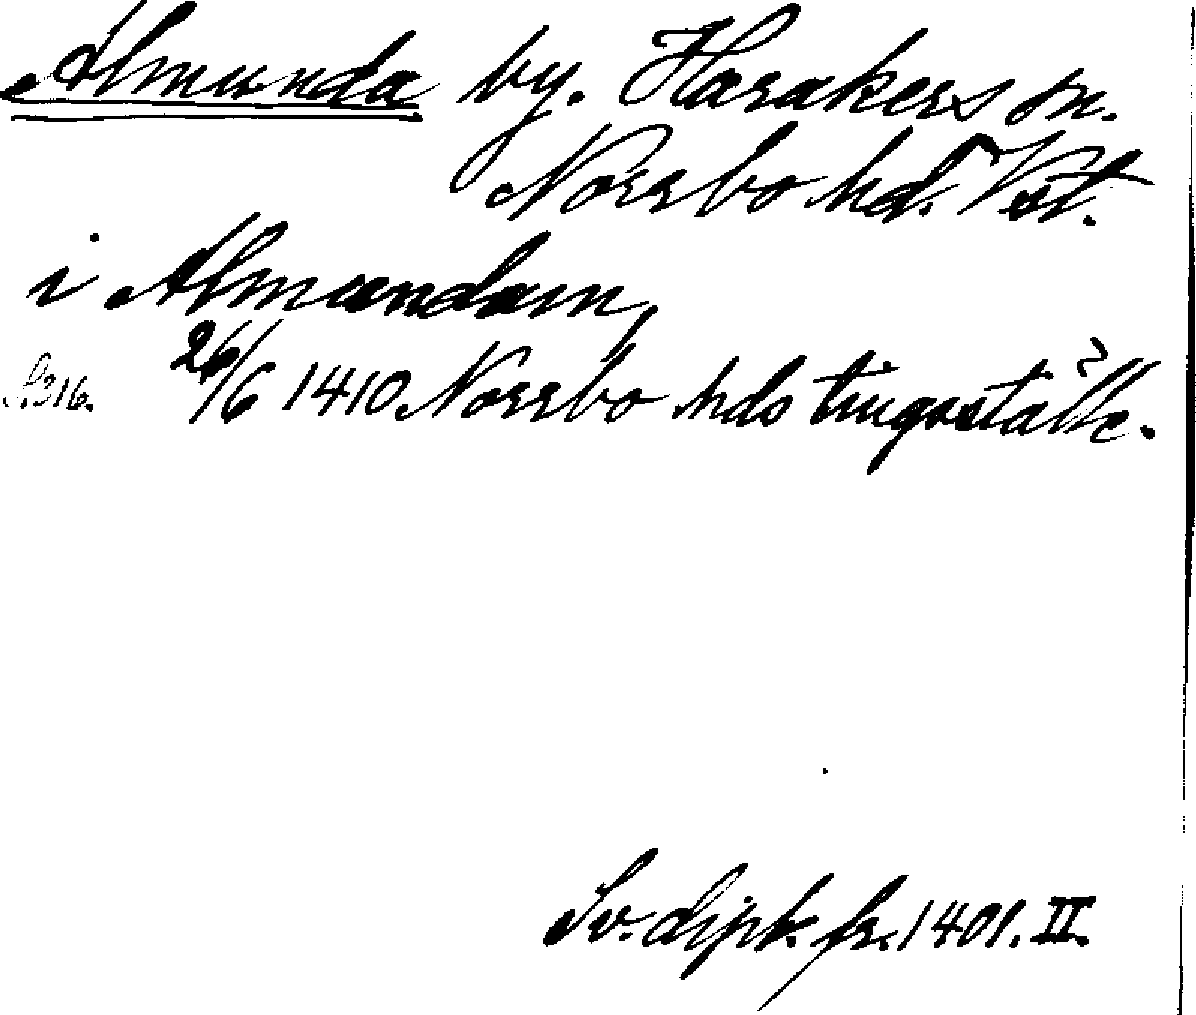 Almunda by. Harakers sn.
Norrbo hd. Vst.
i Almundam,
S. 316. 26/6 1410 Norrbo hds tingställe.
Sv. dipl. fr. 1401. II.